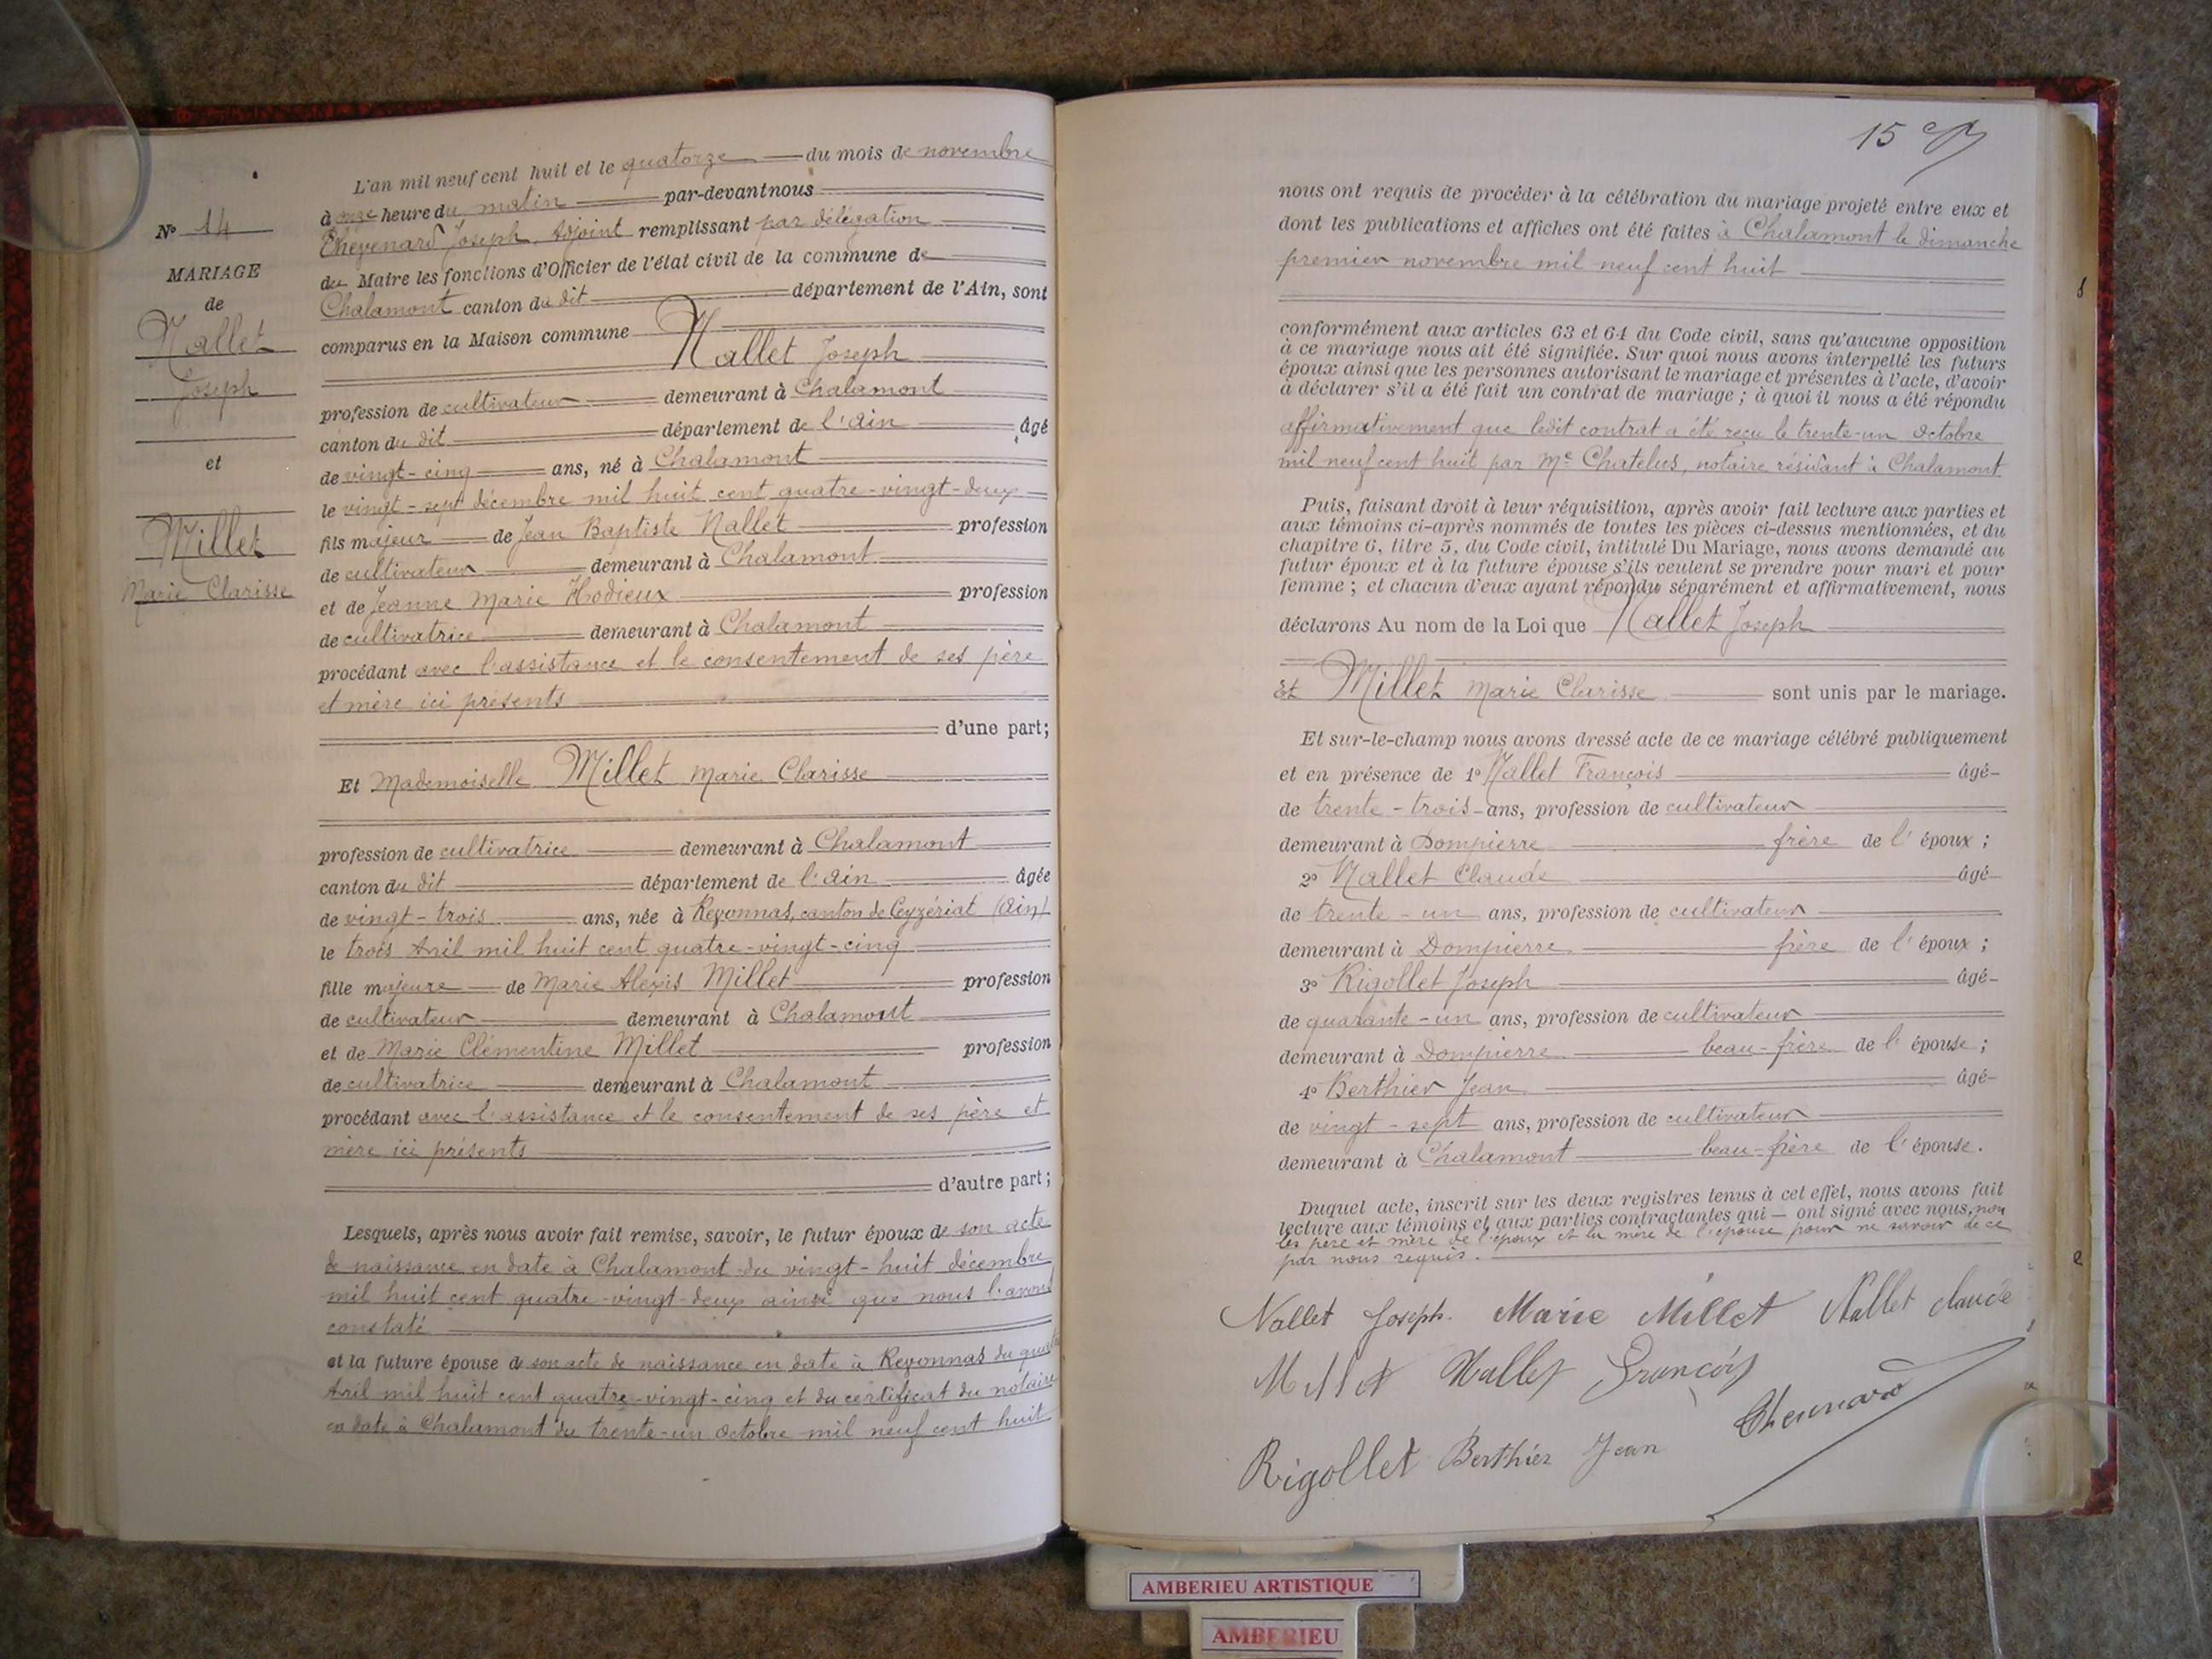 N° 14
MARIAGE
de
Nallet
Joseph
et
Millet
Marie Clarisse
L'an mil neuf cent huit et le quatorze du mois de novembre
à onze heure du matin par-devant nous
Thévenard Joseph, Adjoint remplissant par délégation
du Maire les fonctions d'Officier de l'état civil de la commune de
Chalamont canton du dit département de l'Ain, sont
comparus en la Maison commune
Nallet Joseph
profession de cultivateur demeurant à Chalamont
canton du dit département de l'Ain âgé
de vingt-cinq ans, né à Chalamont
le vingt-sept décembre mil huit cent quatre-vingt-deux
fils majeur de Jean Baptiste Nallet profession
de cultivateur demeurant à Chalamont
et de Jeanne Marie Hodieux profession
de cultivatrice demeurant à Chalamont
procédant avec l'assistance et le consentement de ses père
et mère ici présents
d'une part;
Et Mademoiselle Millet Marie Clarisse
profession de cultivatrice demeurant à Chalamont
canton du dit département de l'Ain âgée
de vingt-trois ans, née à Revonnas, canton de Ceyzériat (Ain)
le trois Avril mil huit cent quatre-vingt-cinq
fille majeure de Marie Alexis Millet profession
de cultivateur demeurant à Chalamont
et de Marie Clémentine Millet profession
de cultivatrice demeurant à Chalamont
procédant avec l'assistance et le consentement de ses père et
mère ici présents
d'autre part;
Lesquels, après nous avoir fait remise, savoir, le futur époux de son acte
de naissance en date à Chalamont du vingt-huit décembre
mil huit cent quatre-vingt-deux ainsi que nous l'avons
constaté
et la future épouse de son acte de naissance en date à Revonnas du quatre
Avril mil huit cent quatre-vingt-cinq et du certificat du notaire
en date à Chalamont du trente-un Octobre mil neuf cent huit
15
nous ont requis de procéder à la célébration du mariage projeté entre eux et
dont les publications et affiches ont été faites à Chalamont le dimanche
premier novembre mil neuf cent huit
conformément aux articles 63 et 64 du Code civil, sans qu'aucune opposition
à ce mariage nous ait été signifiée. Sur quoi nous avons interpellé les futurs
époux ainsi que les personnes autorisant le mariage et présentes à l'acte, d'avoir
à déclarer s'il a été fait un contrat de mariage ; à quoi il nous a été répondu
affirmativement que ledit contrat a été reçu le trente-un Octobre
mil neuf cent huit par Me Chatelus, notaire résidant à Chalamont
Puis, faisant droit à leur réquisition, après avoir fait lecture aux parties et
aux témoins ci-après nommés de toutes les pièces ci-dessus mentionnées, et du
chapitre 6, titre 5, du Code civil, intitulé Du Mariage, nous avons demandé au
futur époux et à la future épouse s'ils veulent se prendre pour mari et pour
femme ; et chacun d'eux ayant répondu séparément et affirmativement, nous
déclarons Au nom de la Loi que Nallet Joseph
Et Millet Marie Clarisse sont unis par le mariage.
Et sur-le-champ nous avons dressé acte de ce mariage célébré publiquement
et en présence de 1° Nallet François âgé
de trente-trois ans, profession de cultivateur
demeurant à Dompierre frère de l'époux ;
2° Nallet Claude âgé
de trente-un ans, profession de cultivateur
demeurant à Dompierre frère de l'époux ;
3° Rigollet Joseph âgé
de quarante-un ans, profession de cultivateur
demeurant à Dompierre beau-frère de l'épouse ;
4° Berthier Jean âgé
de vingt-sept ans, profession de cultivateur
demeurant à Chalamont beau-frère de l'épouse.
Duquel acte, inscrit sur les deux registres tenus à cet effet, nous avons fait
lecture aux témoins et aux parties contractantes qui ont signé avec nous, non
les père et mère de l'époux et la mère de l'épouse pour ne savoir de ce
par nous requis.
Nallet Joseph. Marie Millet Nallet claude
Millet Nallet François
Thevenard
Rigollet Berthier Jean
AMBERIEU ARTISTIQUE
AMBERIEU